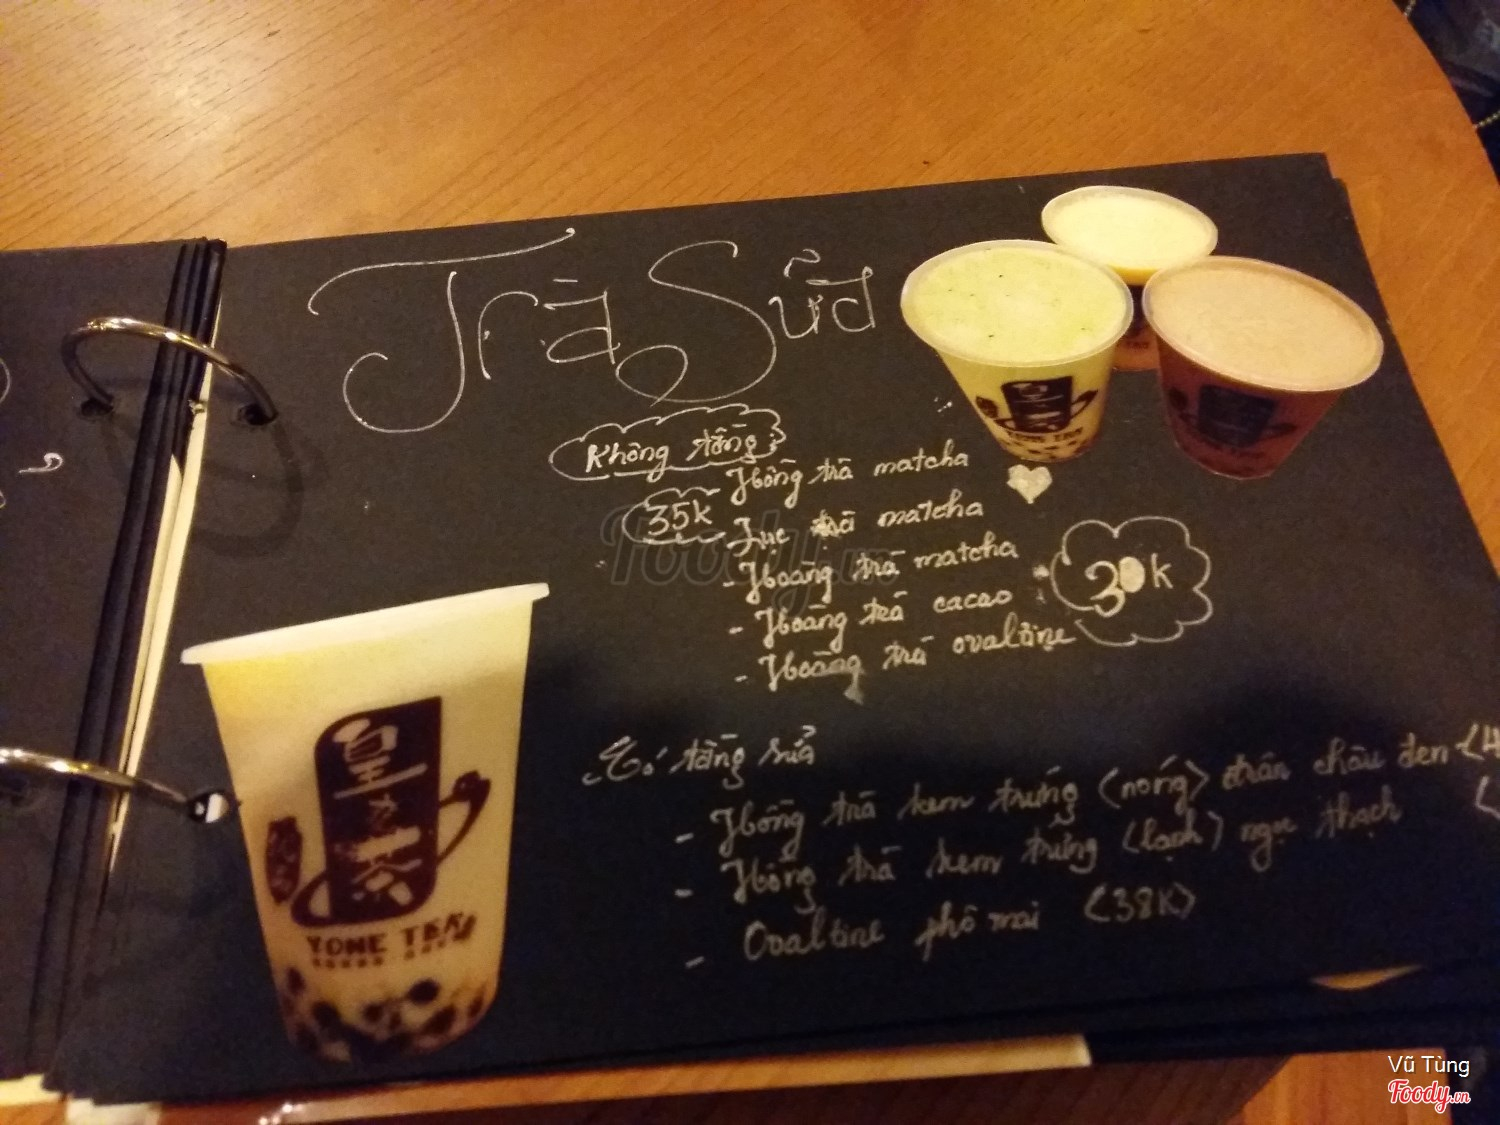 Trà Sữa
Không tầng
35k
- Hồng trà matcha
- Lục trà matcha
- Hoàng trà matcha
- Hoàng trà cacao
- Hoàng trà ovaltine
30k
Có tầng sữa
- Hồng trà kem trứng (nóng) trân châu đen
- Hồng trà kem trứng (lạnh) ngọc thạch
- Ovaltine phô mai (38K)
皇茶
YONE TEA
YONE TEA
Foody.vn
Vũ Tùng
Foody.vn